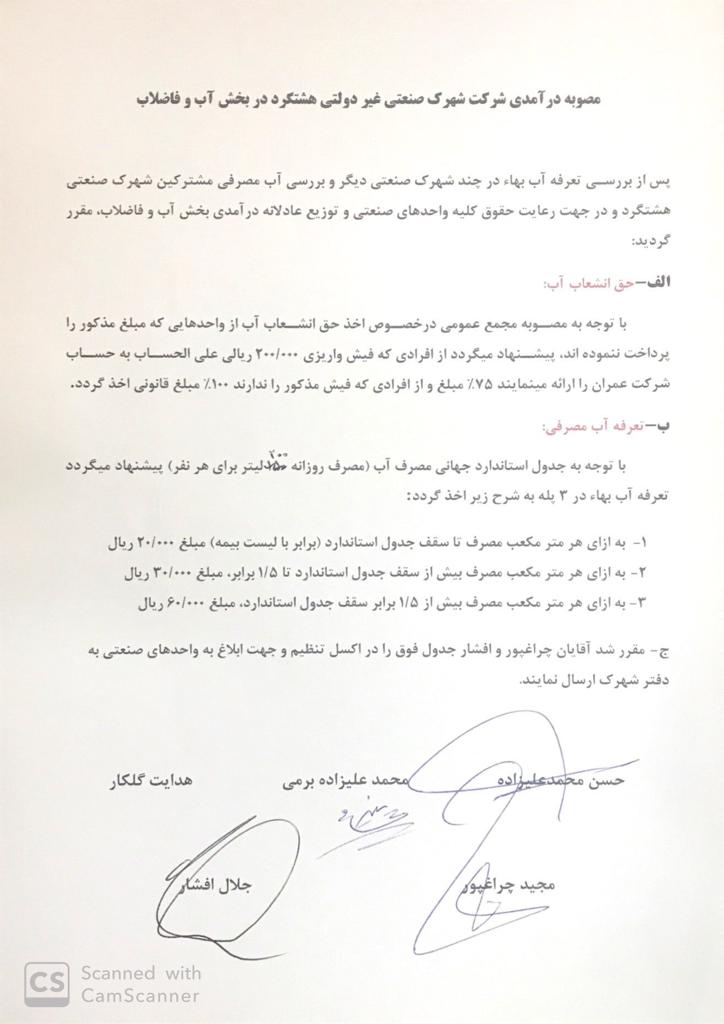 مصوبه درآمدی شرکت شهرک صنعتی غیر دولتی هشتگرد در بخش آب و فاضلاب
پس از بررسی تعرفه آب بهاء در چند شهرک صنعتی دیگر و بررسی آب مصرفی مشترکین شهرک صنعتی
هشتگرد و در جهت رعایت حقوق کلیه واحدهای صنعتی و توزیع عادلانه درآمدی بخش آب و فاضلاب، مقرر
گردید:
الف–حق انشعاب آب:
با توجه به مصوبه مجمع عمومی درخصوص اخذ حق انشعاب آب از واحدهایی که مبلغ مذکور را
پرداخت ننموده اند، پیشنهاد میگردد از افرادی که فیش واریزی ۲۰۰/۰۰۰ ریالی علی الحساب به حساب
شرکت عمران را ارائه مینمایند ۷۵٪ مبلغ و از افرادی که فیش مذکور را ندارند ۱۰۰٪ مبلغ قانونی اخذ گردد.
ب–تعرفه آب مصرفی:
با توجه به جدول استاندارد جهانی مصرف آب (مصرف روزانه لیتر برای هر نفر) پیشنهاد میگردد
تعرفه آب بهاء در ۳ پله به شرح زیر اخذ گردد:
۱- به ازای هر متر مکعب مصرف تا سقف جدول استاندارد (برابر با لیست بیمه) مبلغ ۲۰/۰۰۰ ریال
۲- به ازای هر متر مکعب مصرف بیش از سقف جدول استاندارد تا ۱/۵ برابر، مبلغ ۳۰/۰۰۰ ریال
۳- به ازای هر متر مکعب مصرف بیش از ۱/۵ برابر سقف جدول استاندارد، مبلغ ۶۰/۰۰۰ ریال
ج- مقرر شد آقایان چراغپور و افشار جدول فوق را در اکسل تنظیم و جهت ابلاغ به واحدهای صنعتی به
دفتر شهرک ارسال نمایند.
حسن محمدعلیزاده محمد علیزاده برمی هدایت گلکار
مجید چراغپور جلال افشار
CS Scanned with
CamScanner